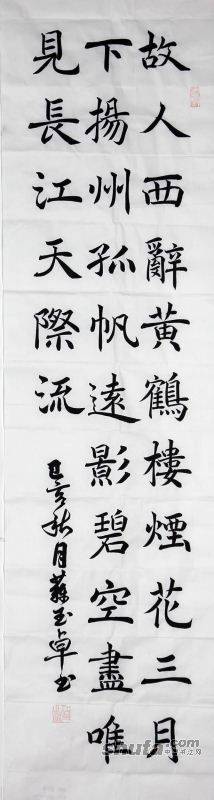 故人西辭黄鶴樓煙花三月
下揚州孤帆遠影碧空盡唯
見長江天際流
己亥秋月蘇玉卓书
shufa.com